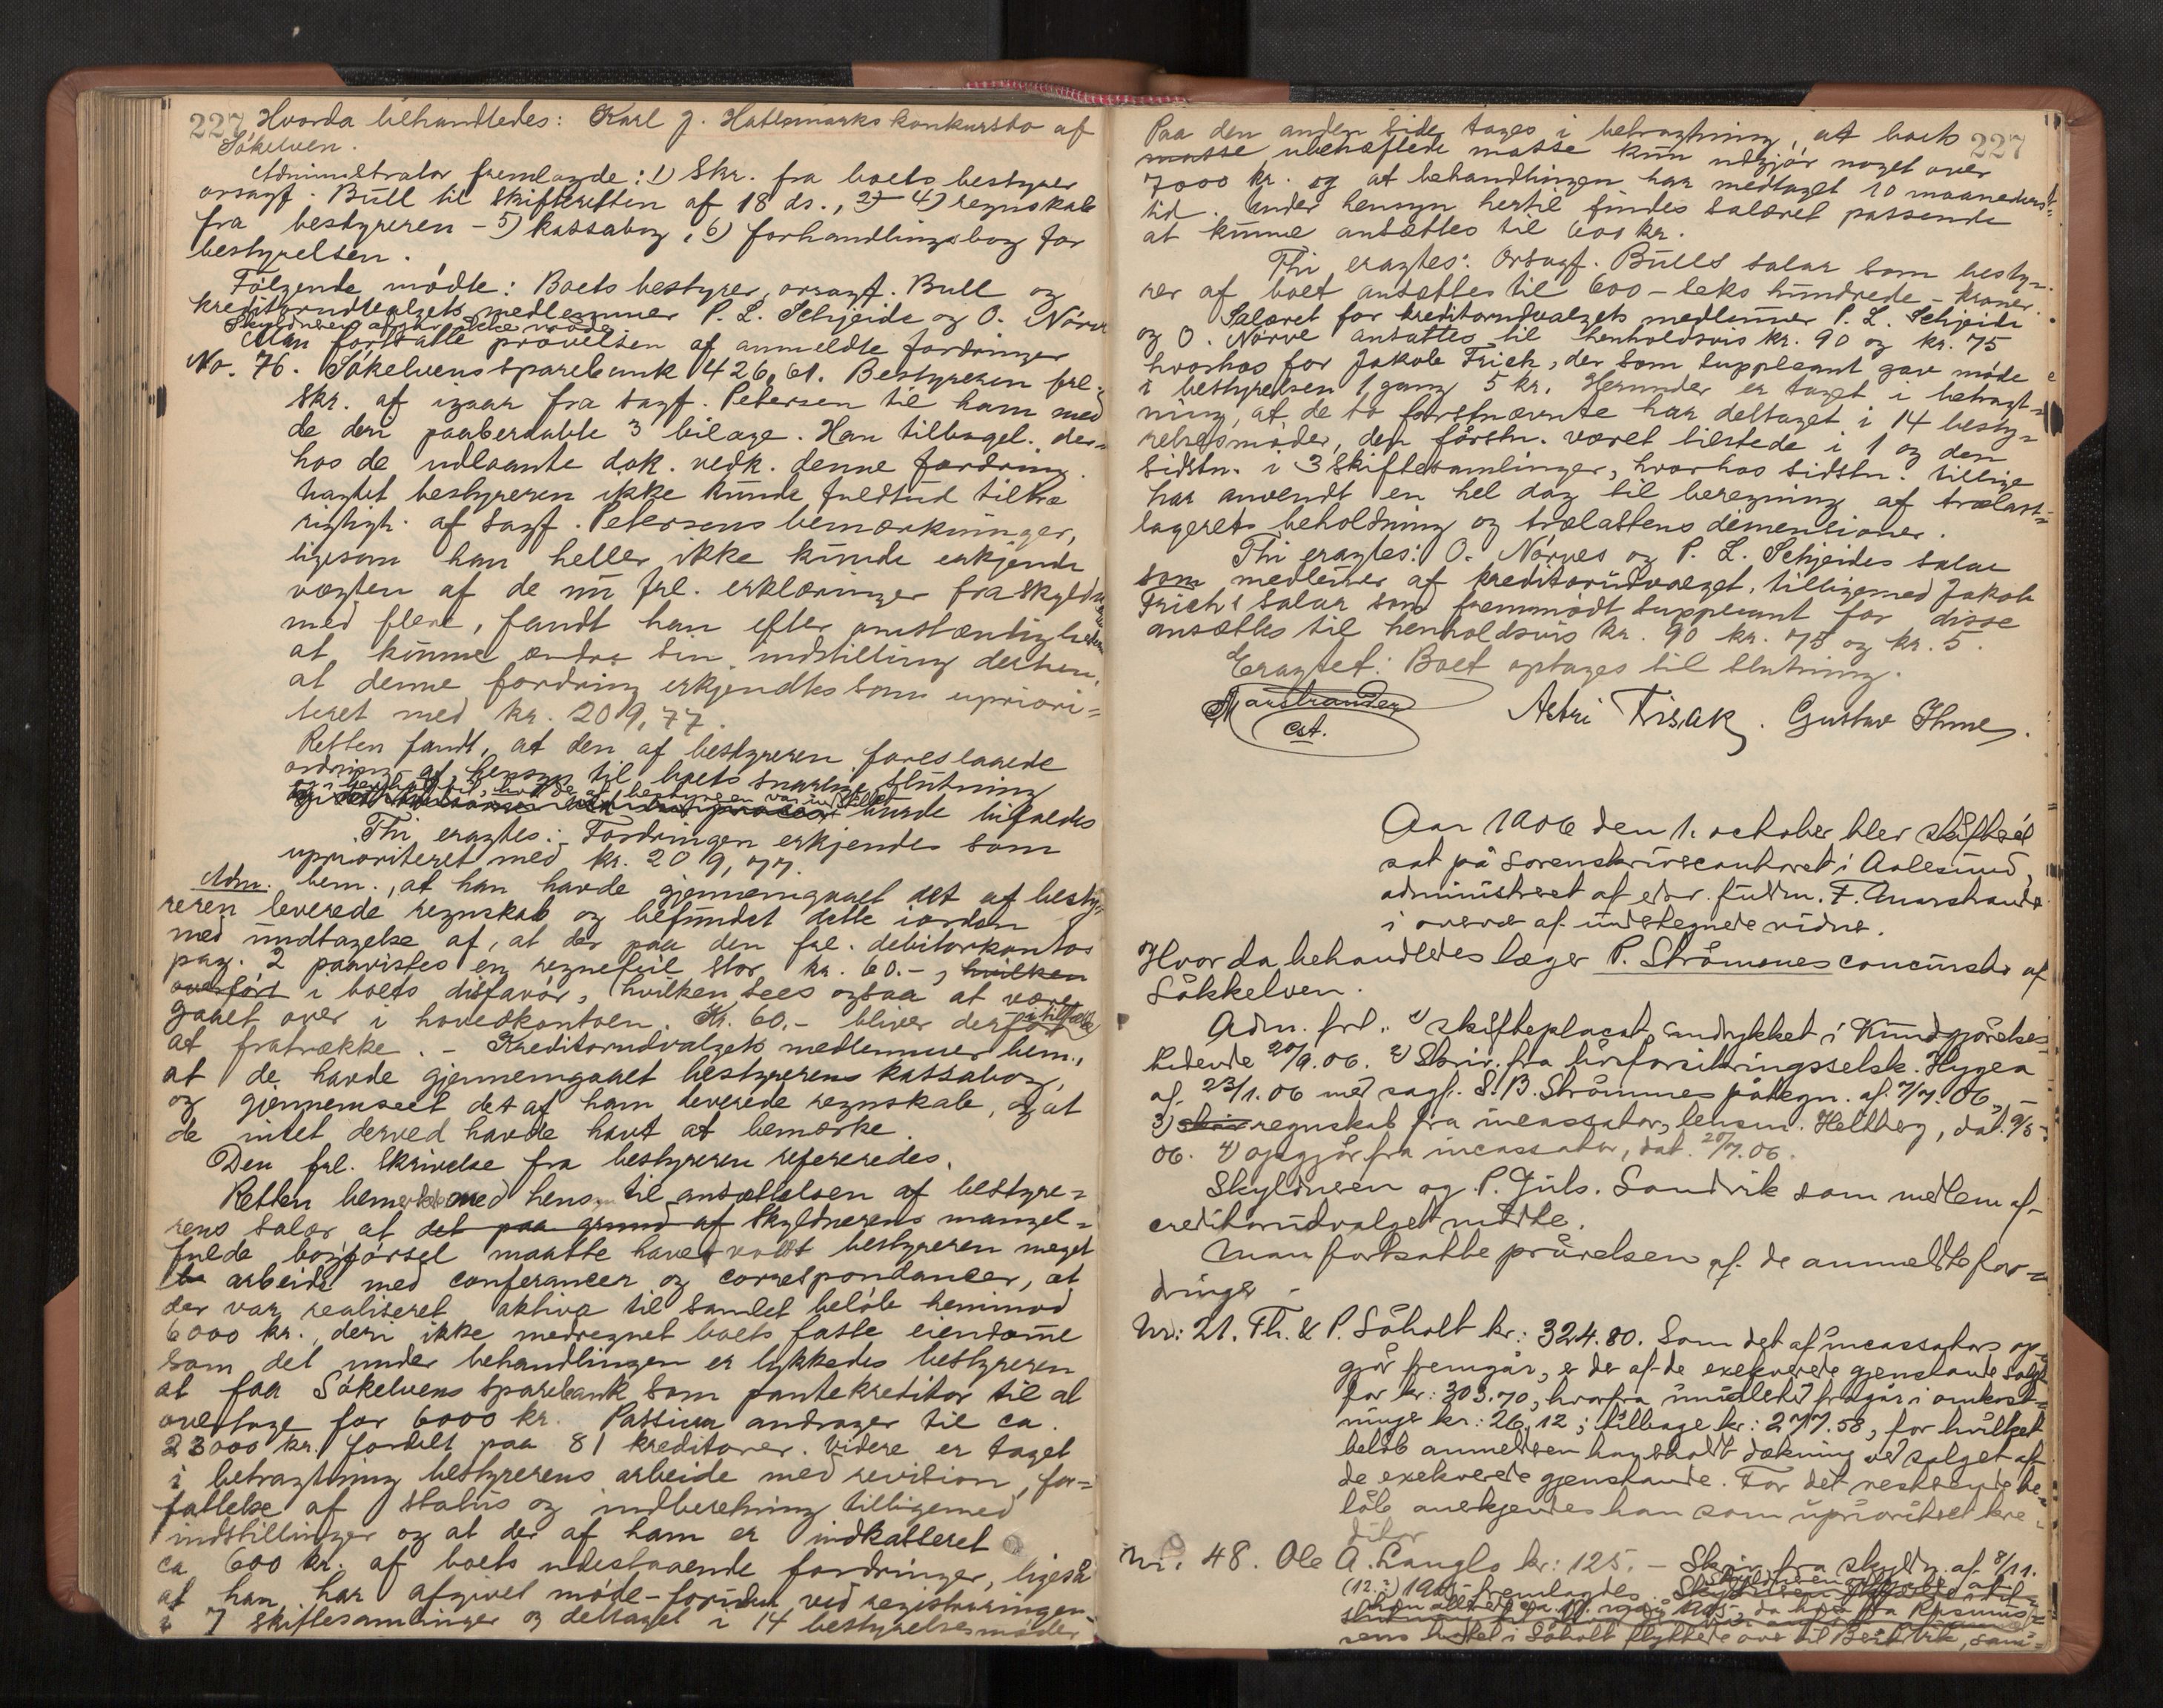 227 Hvorda behandledes: Karl J. Hatlemarks konkursbo af
Søkelven.
Administrator fremlagde: 1) Skr. fra boets bestyrer
orsagf. Bull til skifteretten af 18 ds., 2) - 4) regnskab
fra bestyreren - 5) kassabog, 6) forhandlingsbog for
bestyrelsen.
Følgende mødte: Boets bestyrer, orsagf. Bull og
kreditorudvalgets medlemmer P. L. Schjeide og O. Nørve
Skyldneren mødte
Man fortsatte prøvelsen af anmeldte fordringer
No. 76. Søkelvens sparebank 426,61. Bestyreren frl.
skr. af igaar fra sagf. Petersen til ham med
de deri paaberaabte 3 bilage. Han tilbagel. der-
hos de udlaante dok. vedk. denne fordring.
Uagtet bestyreren ikke kunde fuldtud tiltræ
rigtigh. af sagf. Petersens bemærkninger,
ligesom han heller ikke kunde erkjende
vægten af de nu frl. erklæringer fra skyldn.
med flere, fandt han efter omstændigheden
at kunne ændre sin indstilling derhen,
at denne fordring erkjendtes som upriori-
teret med kr. 209,77.
Retten fandt, at den af bestyreren foreslaaede
ordning af hensyn til boets snarlige slutning
burde bifaldes
Thi eragtes: Fordringen erkjendes som
uprioriteret med kr. 209,77.
Adm. bem., at han havde gjennemgaaet det af besty-
reren leverede regnskab og befundet dette iorden
med undtagelse af, at der paa den frl. debitorkontos
pag. 2 paavistes en regnefeil stor kr. 60.-, hvilken
overført i boets disfavør, hvilken sees ogsaa at være
gaaet over i hovedkontoen. Kr. 60.- bliver derfor
at fratrække. - Kreditorudvalgets medlemmer bem.,
at de havde gjennemgaaet bestyrerens kassabog,
og gjennemseet det af ham leverede regnskab, og at
de intet derved havde havt at bemærke.
Den frl. skrivelse fra bestyreren refereredes.
Retten bemerkede med hens. til ansættelsen af bestyre-
rens salær at det paa grund af skyldnerens mangel-
fulde bogførsel maatte have voldt bestyreren meget
arbeide med conferancer og correspondancer, at
der var realiseret aktiva til samlet beløb henimod
6000 kr., deri ikke medregnet boets faste eiendomme
som det under behandlingen er lykkedes bestyreren
at faa Søkelvens sparebank som pantekreditor til at
overtage for 6000 kr. Passiva andrager til ca.
23000 kr. fordelt paa 81 kreditorer. Videre er taget
i betragtning bestyrerens arbeide med revision, for-
fattelse af status og indberetning tilligemed
indstillinger og at der af ham er indkasseret
ca 600 kr. af boets udestaaende fordringer, ligeså
at han har afgivet møde-foruden ved registreringen-
i 7 skiftesamlinger og deltaget i 14 bestyrelsesmøder
227
Paa den anden side tages i betragtning, at boets
masse ubehæftede masse kun udgjør noget over
7000 kr. og at behandlingen har medtaget 10 maaneders
tid. Under hensyn hertil findes salæret passende
at kunne ansættes til 600 kr.
Thi eragtes: Orsagf. Bulls salær som besty-
rer af boet ansættes til 600 - seks hundrede - kroner.
Salæret for kreditorudvalgets medlemmer P. L. Schjeide
og O. Nørve ansættes til henholdsvis kr. 90 og kr. 75
hvorhos for Jakob Frich, der som suppleant gav møde
i bestyrelsen 1 gang 5 kr. Herunder er taget i betragt-
ning, at de to førstnævnte har deltaget i 14 besty-
relsesmøder, den førstn. været tilstede i 1 og den
sidstn. i 3 skiftesamlinger, hvorhos sidstn. tillige
har anvendt en hel dag til beregning af trælast-
lagerets beholdning og trælastens dimensioner.
Thi eragtes: O. Nørves og P. L. Schjeides salær
som medlemer af kreditorudvalget, tilligemed Jakob
Frichs salær som fremmødt suppleant for disse
ansættes til henholdsvis kr. 90 kr. 75 og kr. 5.
Eragtet: Boet optages til slutning.
cst. Gustav Ihme.
Aar 1906 den 1. october blev skifteret
sat på sorenskrivercontoret i Aalesund,
administreret af edsv. fuldm. F. Maarstrand
i overvær af undertegnede vidne.
Hvor da behandledes læger P. Strømmes concursbo af
Søkkelven.
Adm. frl.: 1) skifteplacat, indrykket i Kundgjørelses-
tidende 20/9.06. 2) Skriv. fra livsforsikringsselsk. Hygea
af 23/1.06 med sagf. S. B. Strømmes påtegn. af 7/7.06, -
3) regnskab fra incassator, lensm. Heltberg, dat. 9/5
06. 4) opgjør fra incassator, dat. 20/7.06.
Skyldneren og P. Juls. Sandvik som medlem af
creditorudvalget mødte.
Man fortsatte prøvelsen af de anmeldte for-
dringer -
Nr: 21. Th. & P. Søholt kr: 324.80. Som det af incassators op-
gjør fremgår, er de af de exekverede gjenstande solgt
for kr: 303.70, hvorfra imidlertid fragår i omkost-
ninger kr: 26,12; tilbage kr: 277.58, for hvilket
beløb anmelderen har erholdt dækning ved salget af
de exekverede gjenstande. For det resterende be-
løb anerkjendes han som uprioritert kre-
ditor
Nr. 48. Ole A. Langlo kr: 125. - Skriv. fra skyldn. af 8/11.
(12.?) fremlagdes.
hotel i Søholt flyttede over til